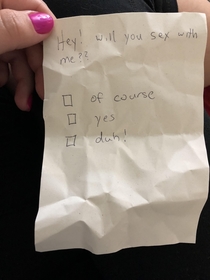 Hey! will you sex with
me??
□ of course
□ yes
□ duh!